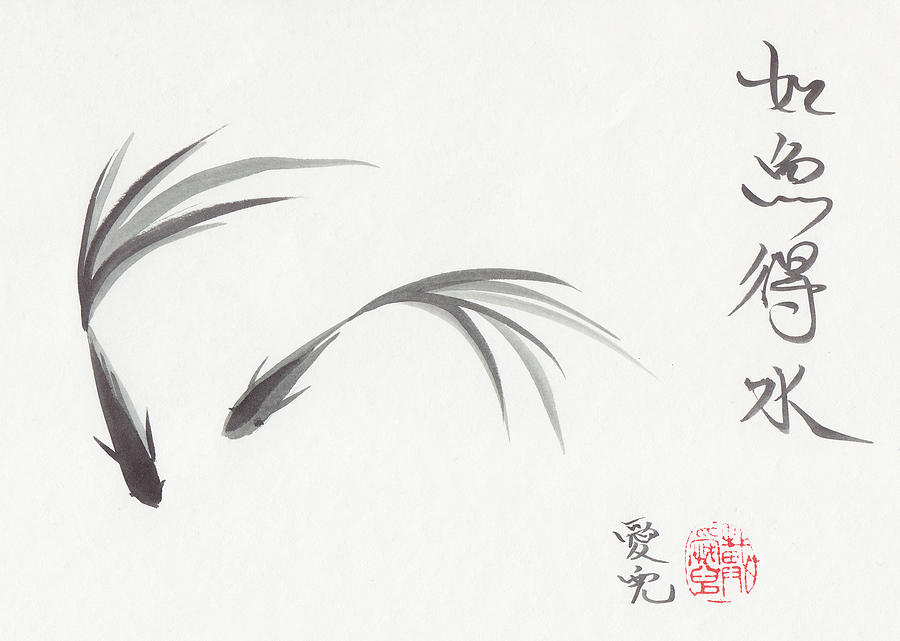 如魚得水
愛兒